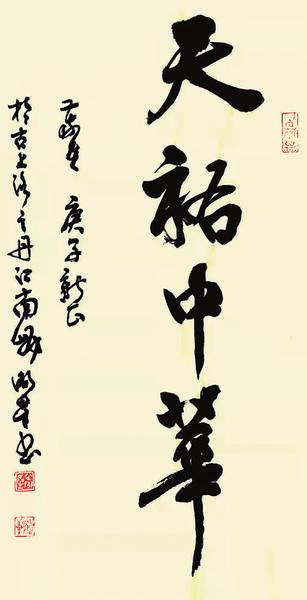 天祐中華
庚子新正
於古上洛之丹江南
書